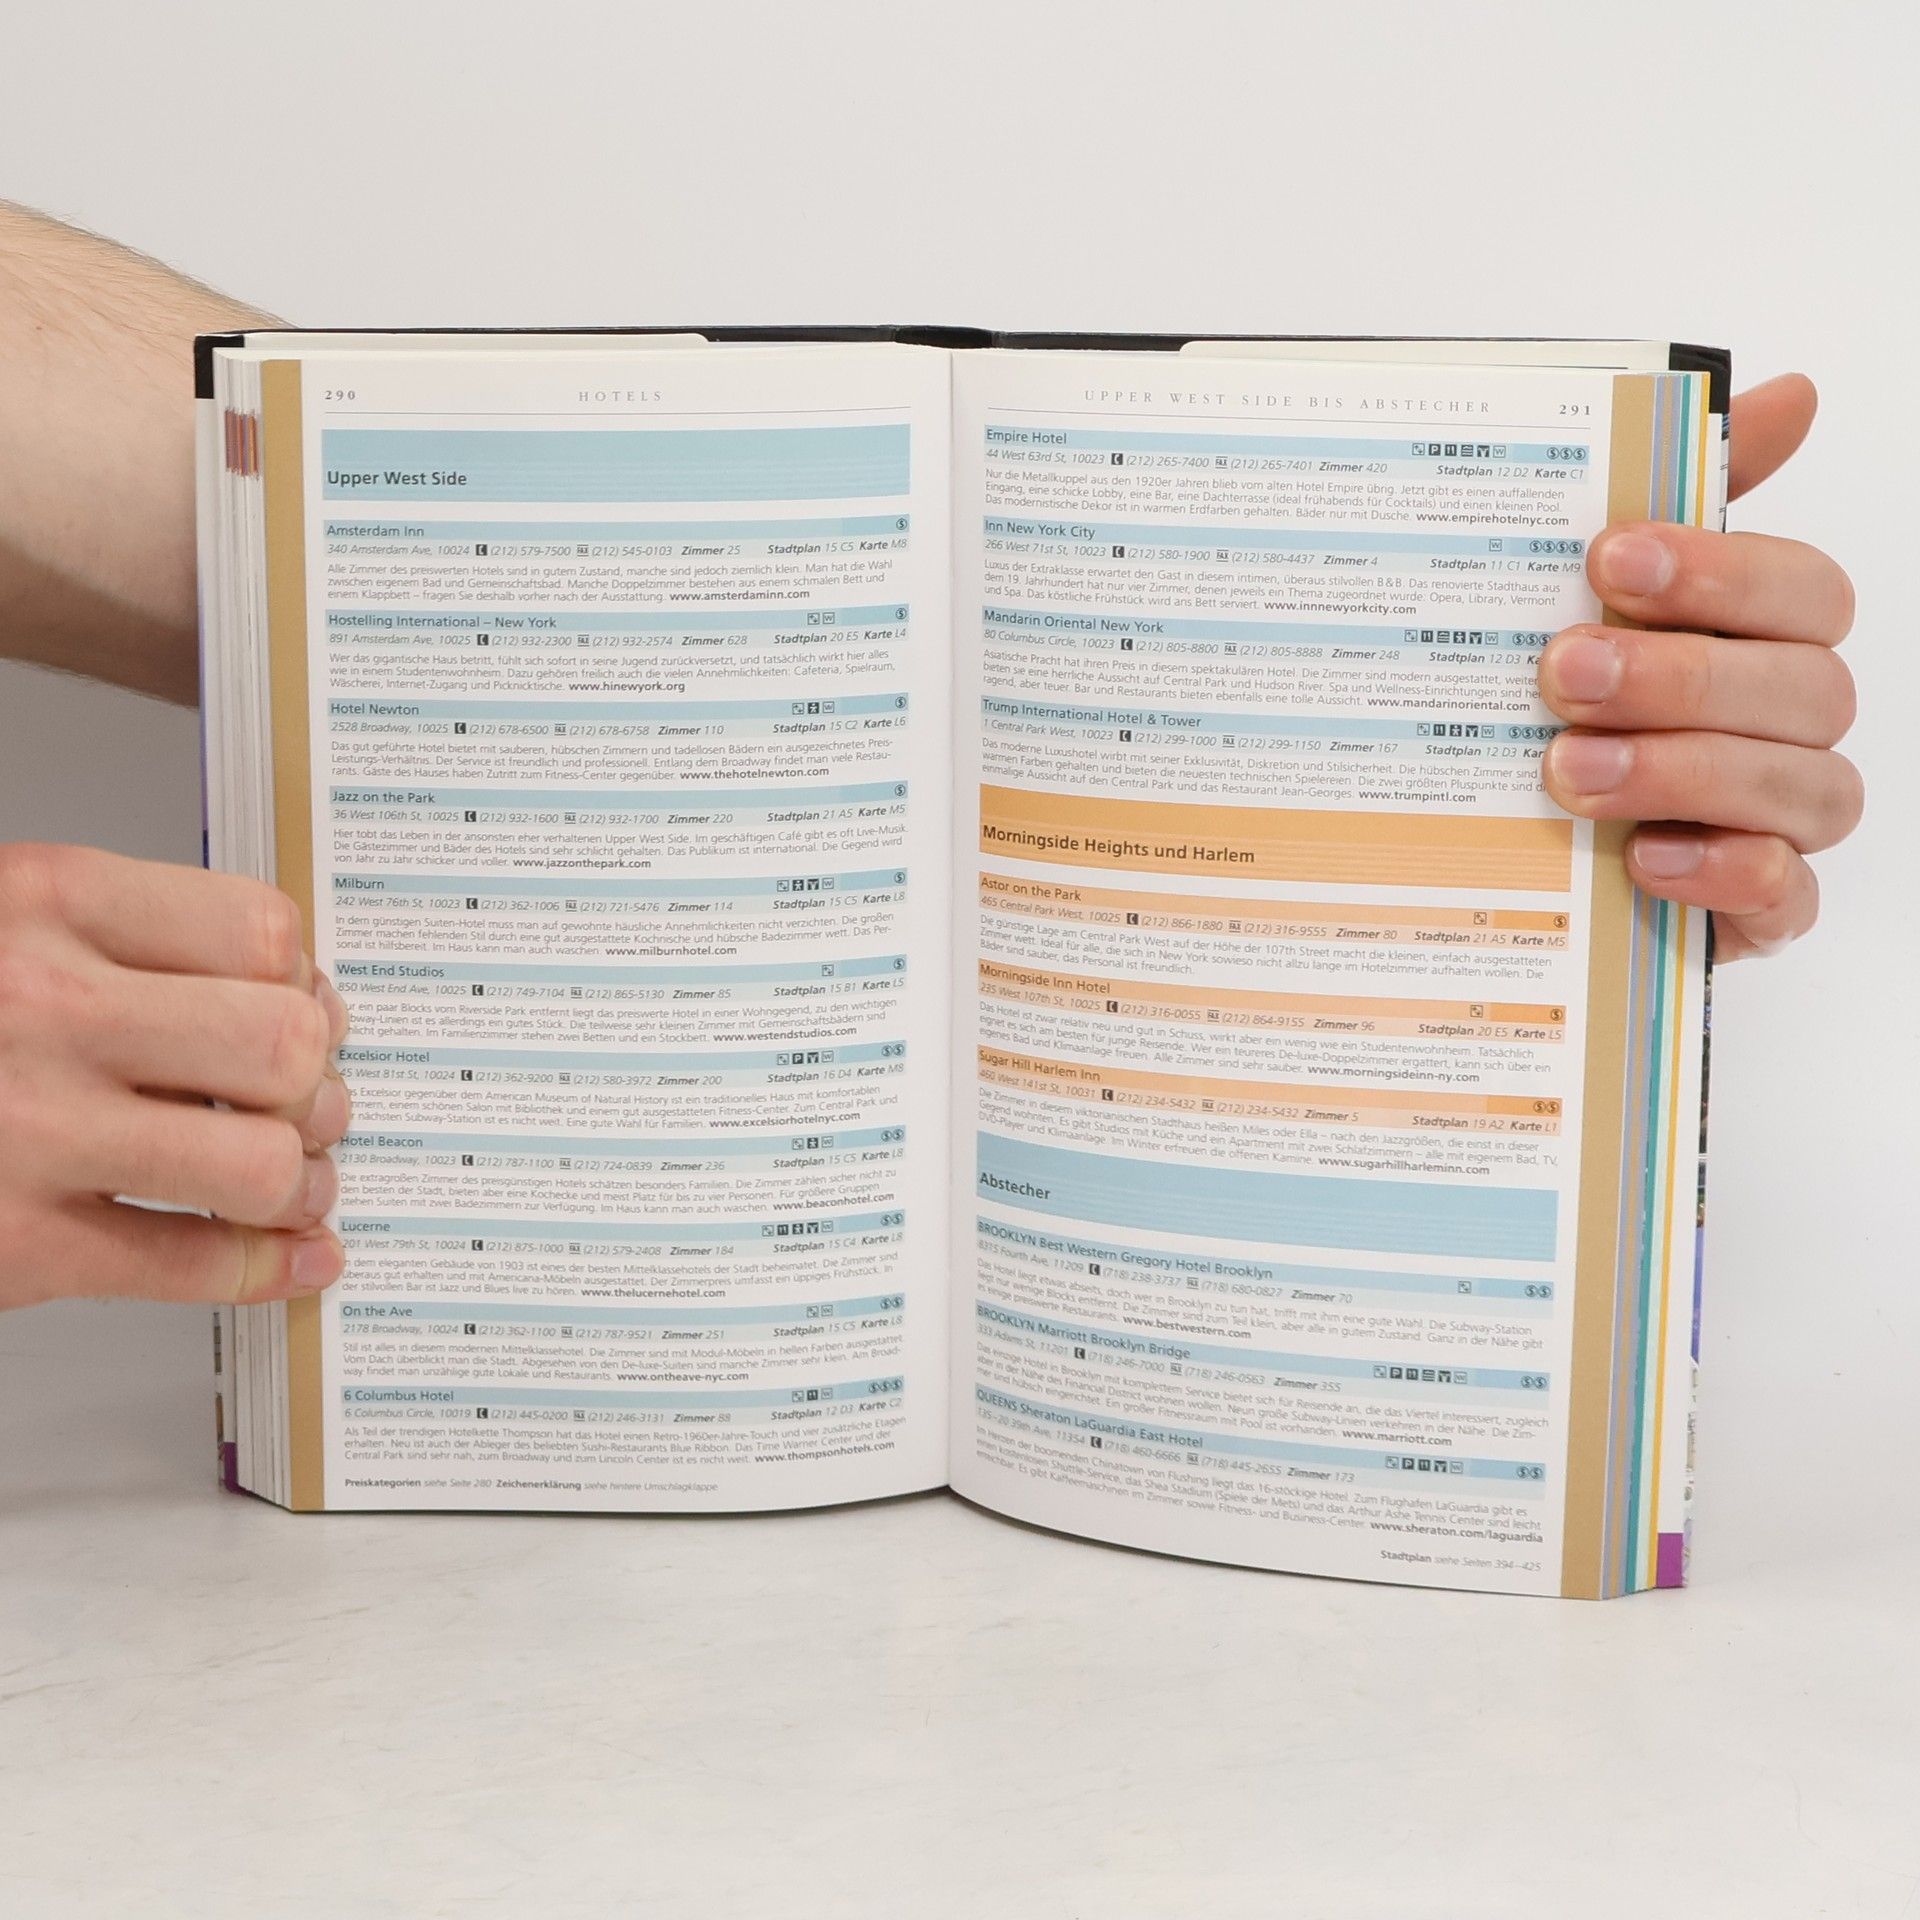 290
HOTELS
Upper West Side
Amsterdam Inn
340 Amsterdam Ave, 10024 (212) 579-7500 FAX (212) 545-0103 Zimmer 25 Stadtplan 15 C5 Karte M8
Alle Zimmer des preiswerten Hotels sind in gutem Zustand, manche sind jedoch ziemlich klein. Man hat die Wahl
zwischen eigenem Bad und Gemeinschaftsbad. Manche Doppelzimmer bestehen aus einem schmalen Bett und
einem Klappbett – fragen Sie deshalb vorher nach der Ausstattung. www.amsterdaminn.com
Hostelling International – New York
891 Amsterdam Ave, 10025 (212) 932-2300 FAX (212) 932-2574 Zimmer 628 Stadtplan 20 E5 Karte L4
Wer das gigantische Haus betritt, fühlt sich sofort in seine Jugend zurückversetzt, und tatsächlich wirkt hier alles
wie in einem Studentenwohnheim. Dazu gehören freilich auch die vielen Annehmlichkeiten: Cafeteria, Spielraum,
Wäscherei, Internet-Zugang und Picknicktische. www.hinewyork.org
Hotel Newton
2528 Broadway, 10025 (212) 678-6500 FAX (212) 678-6758 Zimmer 110 Stadtplan 15 C2 Karte L6
Das gut geführte Hotel bietet mit sauberen, hübschen Zimmern und tadellosen Bädern ein ausgezeichnetes Preis-
Leistungs-Verhältnis. Der Service ist freundlich und professionell. Entlang dem Broadway findet man viele Restau-
rants. Gäste des Hauses haben Zutritt zum Fitness-Center gegenüber. www.thehotelnewton.com
Jazz on the Park
36 West 106th St, 10025 (212) 932-1600 FAX (212) 932-1700 Zimmer 220 Stadtplan 21 A5 Karte M5
Hier tobt das Leben in der ansonsten eher verhaltenen Upper West Side. Im geschäftigen Café gibt es oft Live-Musik.
Die Gästezimmer und Bäder des Hotels sind sehr schlicht gehalten. Das Publikum ist international. Die Gegend wird
von Jahr zu Jahr schicker und voller. www.jazzonthepark.com
Milburn
242 West 76th St, 10023 (212) 362-1006 FAX (212) 721-5476 Zimmer 114 Stadtplan 15 C5 Karte L8
In dem günstigen Suiten-Hotel muss man auf gewohnte häusliche Annehmlichkeiten nicht verzichten. Die großen
Zimmer machen fehlenden Stil durch eine gut ausgestattete Kochnische und hübsche Badezimmer wett. Das Per-
sonal ist hilfsbereit. Im Haus kann man auch waschen. www.milburnhotel.com
West End Studios
850 West End Ave, 10025 (212) 749-7104 FAX (212) 865-5130 Zimmer 85 Stadtplan 15 B1 Karte L5
ur ein paar Blocks vom Riverside Park entfernt liegt das preiswerte Hotel in einer Wohngegend, zu den wichtigen
bway-Linien ist es allerdings ein gutes Stück. Die teilweise sehr kleinen Zimmer mit Gemeinschaftsbädern sind
hlicht gehalten. Im Familienzimmer stehen zwei Betten und ein Stockbett. www.westendstudios.com
Excelsior Hotel
45 West 81st St, 10024 (212) 362-9200 FAX (212) 580-3972 Zimmer 200 Stadtplan 16 D4 Karte M8
s Excelsior gegenüber dem American Museum of Natural History ist ein traditionelles Haus mit komfortablen
mmern, einem schönen Salon mit Bibliothek und einem gut ausgestatteten Fitness-Center. Zum Central Park und
r nächsten Subway-Station ist es nicht weit. Eine gute Wahl für Familien. www.excelsiorhotelnyc.com
Hotel Beacon
2130 Broadway, 10023 (212) 787-1100 FAX (212) 724-0839 Zimmer 236 Stadtplan 15 C5 Karte L8
Die extragroßen Zimmer des preisgünstigen Hotels schätzen besonders Familien. Die Zimmer zählen sicher nicht zu
den besten der Stadt, bieten aber eine Kochecke und meist Platz für bis zu vier Personen. Für größere Gruppen
stehen Suiten mit zwei Badezimmern zur Verfügung. Im Haus kann man auch waschen. www.beaconhotel.com
Lucerne
201 West 79th St, 10024 (212) 875-1000 FAX (212) 579-2408 Zimmer 184 Stadtplan 15 C4 Karte L8
n dem eleganten Gebäude von 1903 ist eines der besten Mittelklassehotels der Stadt beheimatet. Die Zimmer sind
überaus gut erhalten und mit Americana-Möbeln ausgestattet. Der Zimmerpreis umfasst ein üppiges Frühstück. In
der stilvollen Bar ist Jazz und Blues live zu hören. www.thelucernehotel.com
On the Ave
2178 Broadway, 10024 (212) 362-1100 FAX (212) 787-9521 Zimmer 251 Stadtplan 15 C5 Karte L8
Stil ist alles in diesem modernen Mittelklassehotel. Die Zimmer sind mit Modul-Möbeln in hellen Farben ausgestattet.
Vom Dach überblickt man die Stadt. Abgesehen von den De-luxe-Suiten sind manche Zimmer sehr klein. Am Broad-
way findet man unzählige gute Lokale und Restaurants. www.ontheave-nyc.com
6 Columbus Hotel
6 Columbus Circle, 10019 (212) 445-0200 FAX (212) 246-3131 Zimmer 88 Stadtplan 12 D3 Karte C2
Als Teil der trendigen Hotelkette Thompson hat das Hotel einen Retro-1960er-Jahre-Touch und vier zusätzliche Etagen
erhalten. Neu ist auch der Ableger des beliebten Sushi-Restaurants Blue Ribbon. Das Time Warner Center und der
Central Park sind sehr nah, zum Broadway und zum Lincoln Center ist es nicht weit. www.thompsonhotels.com
Preiskategorien siehe Seite 280 Zeichenerklärung siehe hintere Umschlagklappe
UPPER WEST SIDE BIS ABSTECHER
291
Empire Hotel
44 West 63rd St, 10023 (212) 265-7400 FAX (212) 265-7401 Zimmer 420 Stadtplan 12 D2 Karte C1
Nur die Metallkuppel aus den 1920er Jahren blieb vom alten Hotel Empire übrig. Jetzt gibt es einen auffallenden
Eingang, eine schicke Lobby, eine Bar, eine Dachterrasse (ideal frühabends für Cocktails) und einen kleinen Pool.
Das modernistische Dekor ist in warmen Erdfarben gehalten. Bäder nur mit Dusche. www.empirehotelnyc.com
Inn New York City
266 West 71st St, 10023 (212) 580-1900 FAX (212) 580-4437 Zimmer 4 Stadtplan 11 C1 Karte M9
Luxus der Extraklasse erwartet den Gast in diesem intimen, überaus stilvollen B&B. Das renovierte Stadthaus aus
dem 19. Jahrhundert hat nur vier Zimmer, denen jeweils ein Thema zugeordnet wurde: Opera, Library, Vermont
und Spa. Das köstliche Frühstück wird ans Bett serviert. www.innnewyorkcity.com
Mandarin Oriental New York
80 Columbus Circle, 10023 (212) 805-8800 FAX (212) 805-8888 Zimmer 248 Stadtplan 12 D3 Ka
Asiatische Pracht hat ihren Preis in diesem spektakulären Hotel. Die Zimmer sind modern ausgestattet, weiter
bieten sie eine herrliche Aussicht auf Central Park und Hudson River. Spa und Wellness-Einrichtungen sind he
ragend, aber teuer. Bar und Restaurants bieten ebenfalls eine tolle Aussicht. www.mandarinoriental.com
Trump International Hotel & Tower
1 Central Park West, 10023 (212) 299-1000 FAX (212) 299-1150 Zimmer 167 Stadtplan 12 D3 Kar
Das moderne Luxushotel wirbt mit seiner Exklusivität, Diskretion und Stilsicherheit. Die hübschen Zimmer sind
warmen Farben gehalten und bieten die neuesten technischen Spielereien. Die zwei größten Pluspunkte sind d
einmalige Aussicht auf den Central Park und das Restaurant Jean-Georges. www.trumpintl.com
Morningside Heights und Harlem
Astor on the Park
465 Central Park West, 10025 (212) 866-1880 FAX (212) 316-9555 Zimmer 80 Stadtplan 21 A5 Karte M5
Die günstige Lage am Central Park West auf der Höhe der 107th Street macht die kleinen, einfach ausgestatteten
Zimmer wett. Ideal für alle, die sich in New York sowieso nicht allzu lange im Hotelzimmer aufhalten wollen. Die
Bäder sind sauber, das Personal ist freundlich.
Morningside Inn Hotel
235 West 107th St, 10025 (212) 316-0055 FAX (212) 864-9155 Zimmer 96 Stadtplan 20 E5 Karte L5
Das Hotel ist zwar relativ neu und gut in Schuss, wirkt aber ein wenig wie ein Studentenwohnheim. Tatsächlich
eignet es sich am besten für junge Reisende. Wer ein teureres De-luxe-Doppelzimmer ergattert, kann sich über ein
eigenes Bad und Klimaanlage freuen. Alle Zimmer sind sehr sauber. www.morningsideinn-ny.com
Sugar Hill Harlem Inn
460 West 141st St, 10031 (212) 234-5432 FAX (212) 234-5432 Zimmer 5 Stadtplan 19 A2 Karte L1
Die Zimmer in diesem viktorianischen Stadthaus heißen Miles oder Ella – nach den Jazzgrößen, die einst in dieser
Gegend wohnten. Es gibt Studios mit Küche und ein Apartment mit zwei Schlafzimmern – alle mit eigenem Bad, TV,
DVD-Player und Klimaanlage. Im Winter erfreuen die offenen Kamine. www.sugarhillharleminn.com
Abstecher
BROOKLYN Best Western Gregory Hotel Brooklyn
8315 Fourth Ave, 11209 (718) 238-3737 FAX (718) 680-0827 Zimmer 70
Das Hotel liegt etwas abseits, doch wer in Brooklyn zu tun hat, trifft mit ihm eine gute Wahl. Die Subway-Station
liegt nur wenige Blocks entfernt. Die Zimmer sind zum Teil klein, aber alle in gutem Zustand. Ganz in der Nähe gibt
es einige preiswerte Restaurants. www.bestwestern.com
BROOKLYN Marriott Brooklyn Bridge
333 Adams St, 11201 (718) 246-7000 FAX (718) 246-0563 Zimmer 355
Das einzige Hotel in Brooklyn mit komplettem Service bietet sich für Reisende an, die das Viertel interessiert, zugleich
aber in der Nähe des Financial District wohnen wollen. Neun große Subway-Linien verkehren in der Nähe. Die Zim-
mer sind hübsch eingerichtet. Ein großer Fitnessraum mit Pool ist vorhanden. www.marriott.com
QUEENS Sheraton LaGuardia East Hotel
135-20 39th Ave, 11354 (718) 460-6666 FAX (718) 445-2655 Zimmer 173
Im Herzen der boomenden Chinatown von Flushing liegt das 16-stöckige Hotel. Zum Flughafen LaGuardia gibt es
einen kostenlosen Shuttle-Service, das Shea Stadium (Spiele der Mets) und das Arthur Ashe Tennis Center sind leicht
erreichbar. Es gibt Kaffeemaschinen im Zimmer sowie Fitness- und Business-Center. www.sheraton.com/laguardia
Stadtplan siehe Seiten 394–425